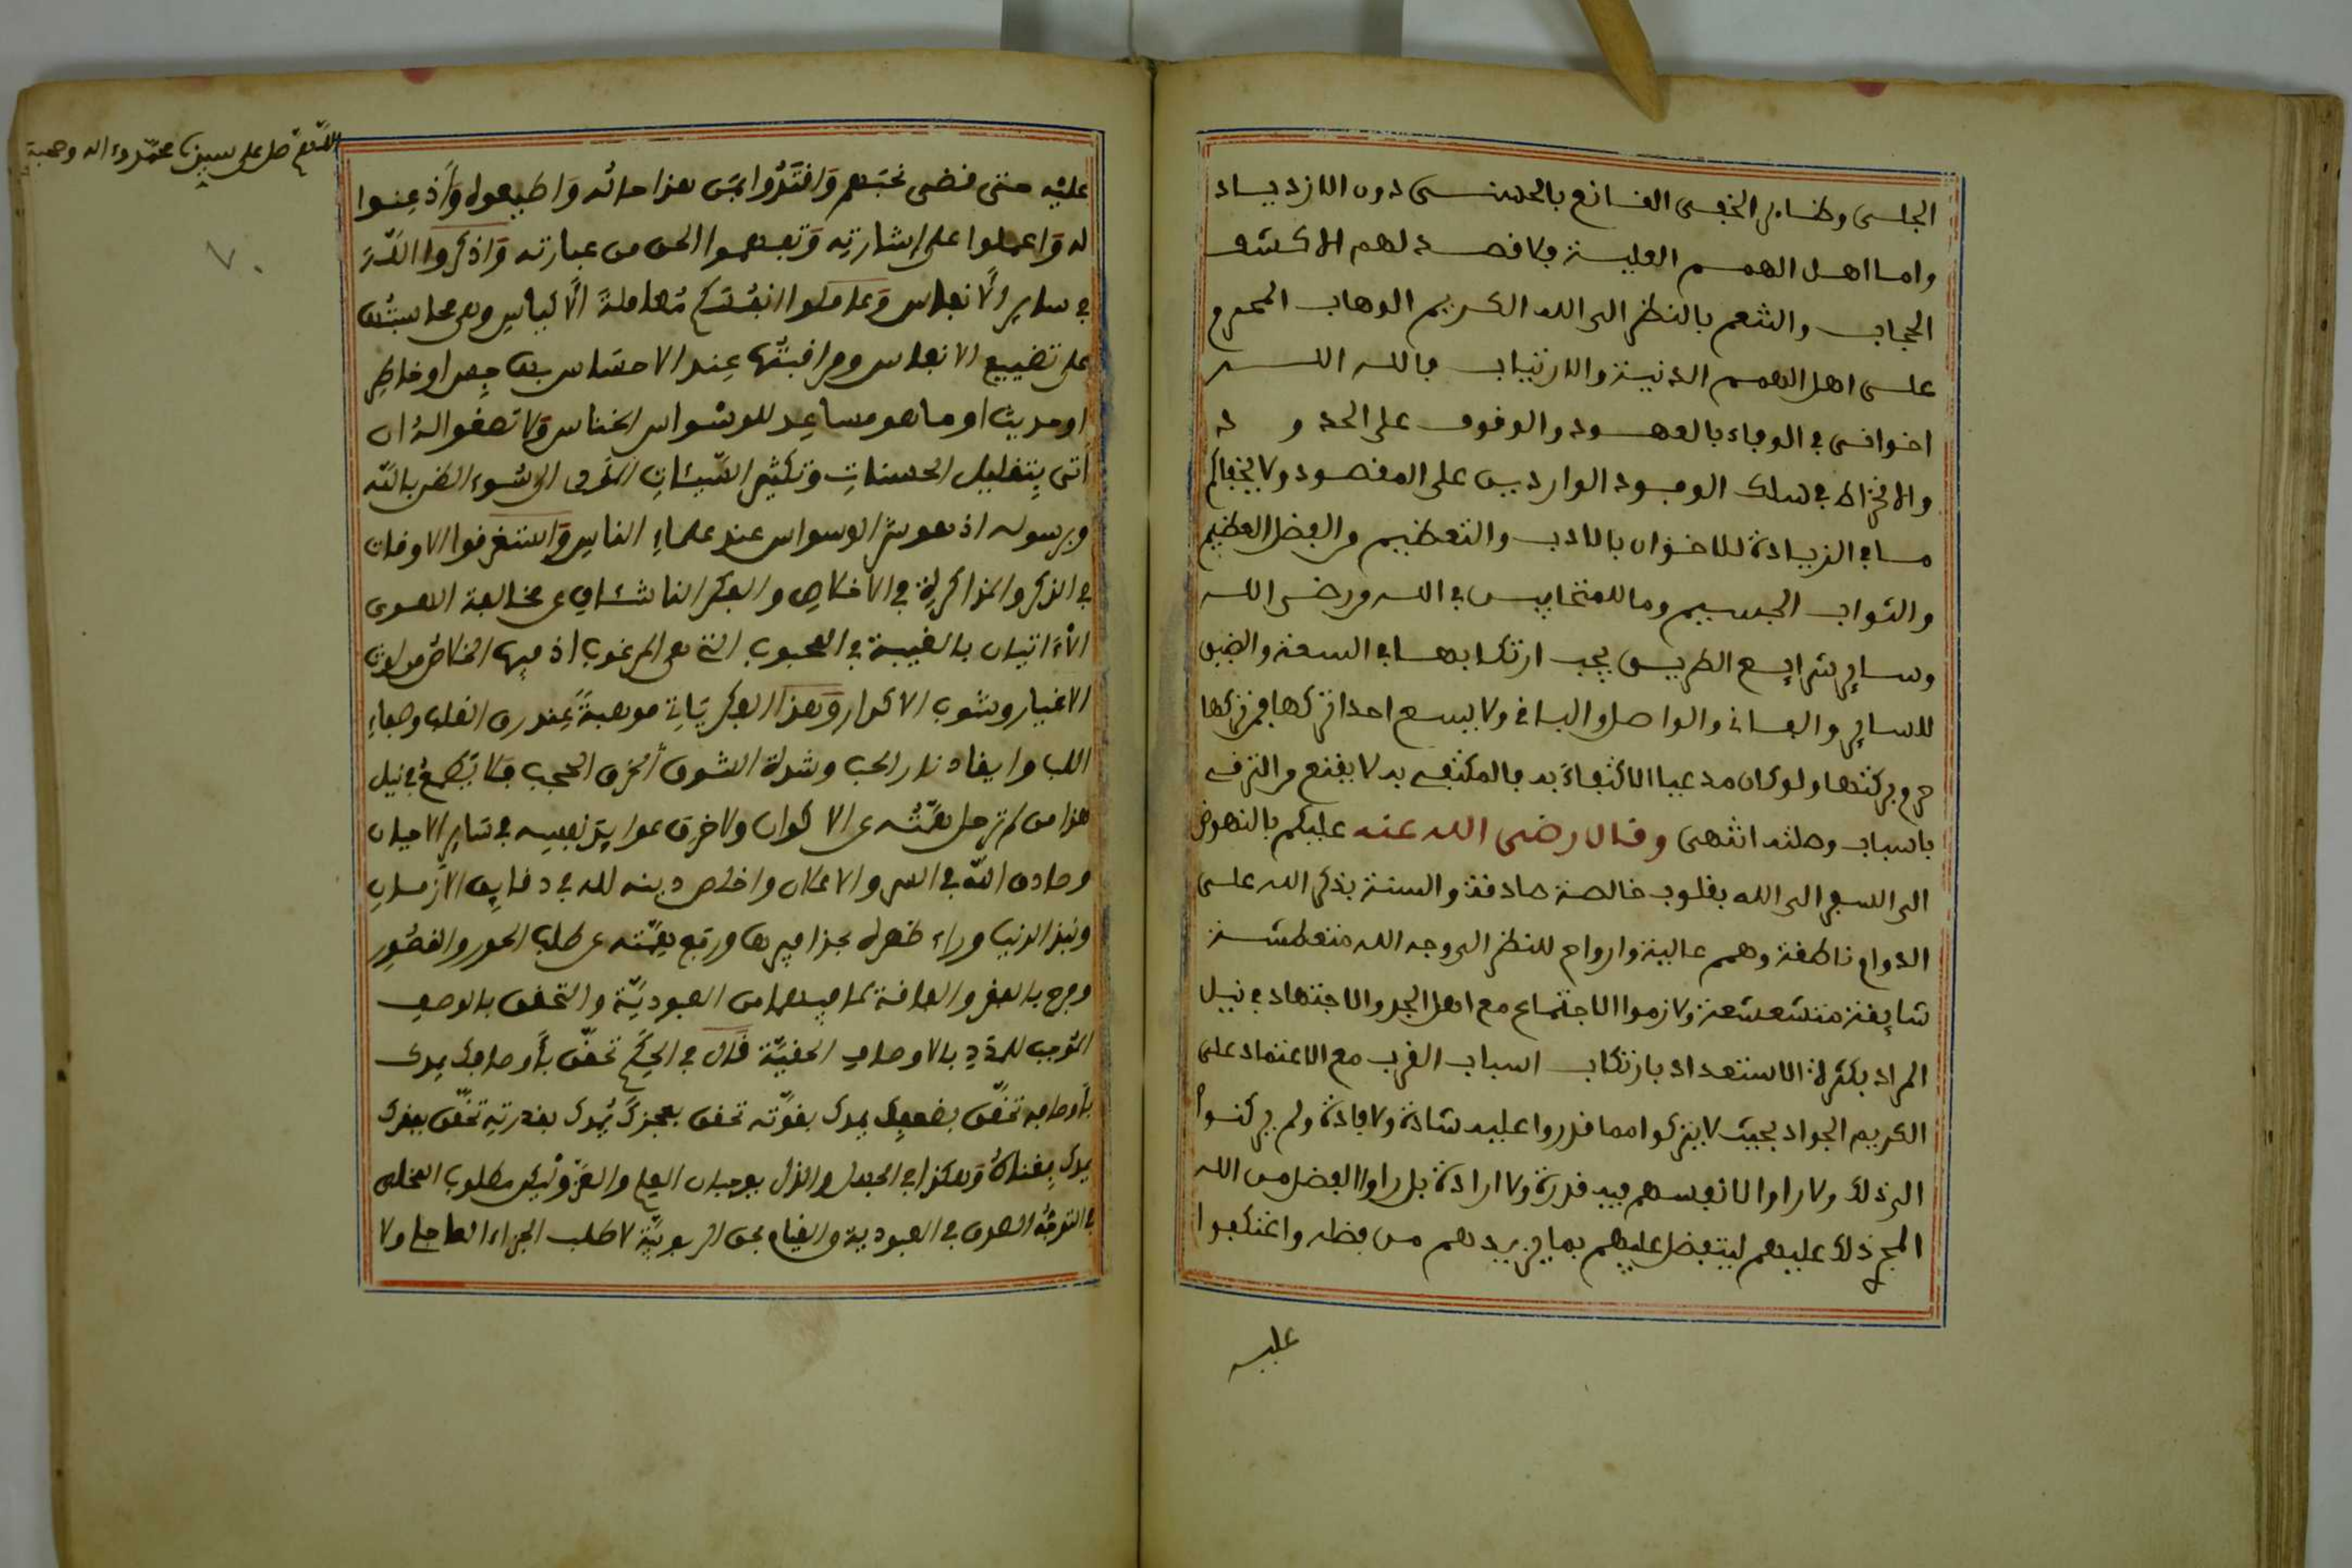 الجلى وظاهر الخفى القانع بالحسنى دون الازدياد
واما اهل الهمم العلية فلا قصد لهم الا كشف
الحجاب والتنعم بالنظر الى الله الكريم الوهاب المحرم
على اهل الهمم الدنية والارتياب فالله الله
اخوانى فى الوفاء بالعهود والوقوف على الحدود
والانخراط فى سلك الوجود الواردين على المقصود ولا يخفاكم
ما فى الزيادة للاخوان بالادب والتعظيم من الفضل العظيم
والثواب الجسيم وما للمتحابين فى الله من رضى الله
وساير شرايع الطريق يجب ارتكابها فى السعة والضيق
للساير والفانى والواصل والباقى ولا يسع احدا تركها فمن تركها
حرم بركتها ولو كان مدعيا الاكتفاء به فالمكتفى به لا يقنع من الترقى
باسباب وصلته انتهى وقال رضى الله عنه عليكم بالنهوض
الى السير الى الله بقلوب خالصة صادقة والسنة بذكر الله على
الدوام ناطقة وهمم عالية وارواح للنظر الى وجه الله متعطشة
شايقة متشعشعة ولازموا الاجتماع مع اهل الجد والاجتهاد فى نيل
المراد بكثرة الاستعداد بارتكاب اسباب القرب مع الاعتماد على
الكريم الجواد بحيث لا يتركوا مما قدروا عليه شاذة ولا فاذة ولم يركنوا
الى ذلك ولا راوا لانفسهم فيه قدرة ولا ارادة بل راوا الفضل من الله
المجرى ذلك عليهم ليتفضل عليهم بما يزيدهم من فضله واعتكفوا
عليه
اللهم صل على سيدنا محمد وءاله وصحبه
عليه حتى قضى نحبهم واقتدوا بمن هذا حاله واطيعوه واذعنوا
له واعملوا على اشارته وتفهموا الحق من عبارته واذكروا الله
فى ساير الانفاس وعاملوا انفسكم معاملة الاكياس وهى محاسبتها
على تضييع الانفاس ومراقبتها عند الاحساس بها جهرا وخاطر
او حديث او ما هو مساعد للوسواس الخناس ولا تصغوا اليه ان
اتى بتقليل الحسنات وتكثير السيئات المؤدى الى سوء الظن بالله
وبرسوله اذ هو شر الوسواس عند علماء الناس واستغرقوا الاوقات
فى الذكر والمذاكرة فى الاخلاص والفكر الناشئ عن مخالفة الهوى
الاتيان بالغيبة فى المحبوب التى هى المرغوب اذ فيها الخلاص من لوث
الاغيار وشوب الاكدار وهذا الفكر يأتى موهبة عند رق القلب وصفاء
اللب وايقاد نار الحب وشدة الشوق لخرق الحجب فلا يطمع فى نيل
هذا من لم ترحل همته عن الاكوان ولا خرق عوايد نفسه فى ساير الاحيان
وصادق الله فى السر والاعلان واخلص دينه لله فى دقايق الازمان
ونبذ الدنيا وراء ظهره بحذافيرها ورفع همته عن طلب الحور والقصور
وفرح بالفقر والفاقة لما فيهما من العبودية والتحقق بالوصف
الموجب للمدد بالاوصاف الحقية قال فى الحكم تحقق باوصافك يمدك
باوصافه تحقق بضعفك يمدك بقوته تحقق بعجزك يمدك بقدرته تحقق بفقرك
يمدك بغناه وهكذا فى الجهل والذل يوجبان العلم والعز وليكن مطلوب المخلص
فى التوجه الصدق فى العبودية والقيام بحق الربوبية لا طلب الجزاء العاجل ولا